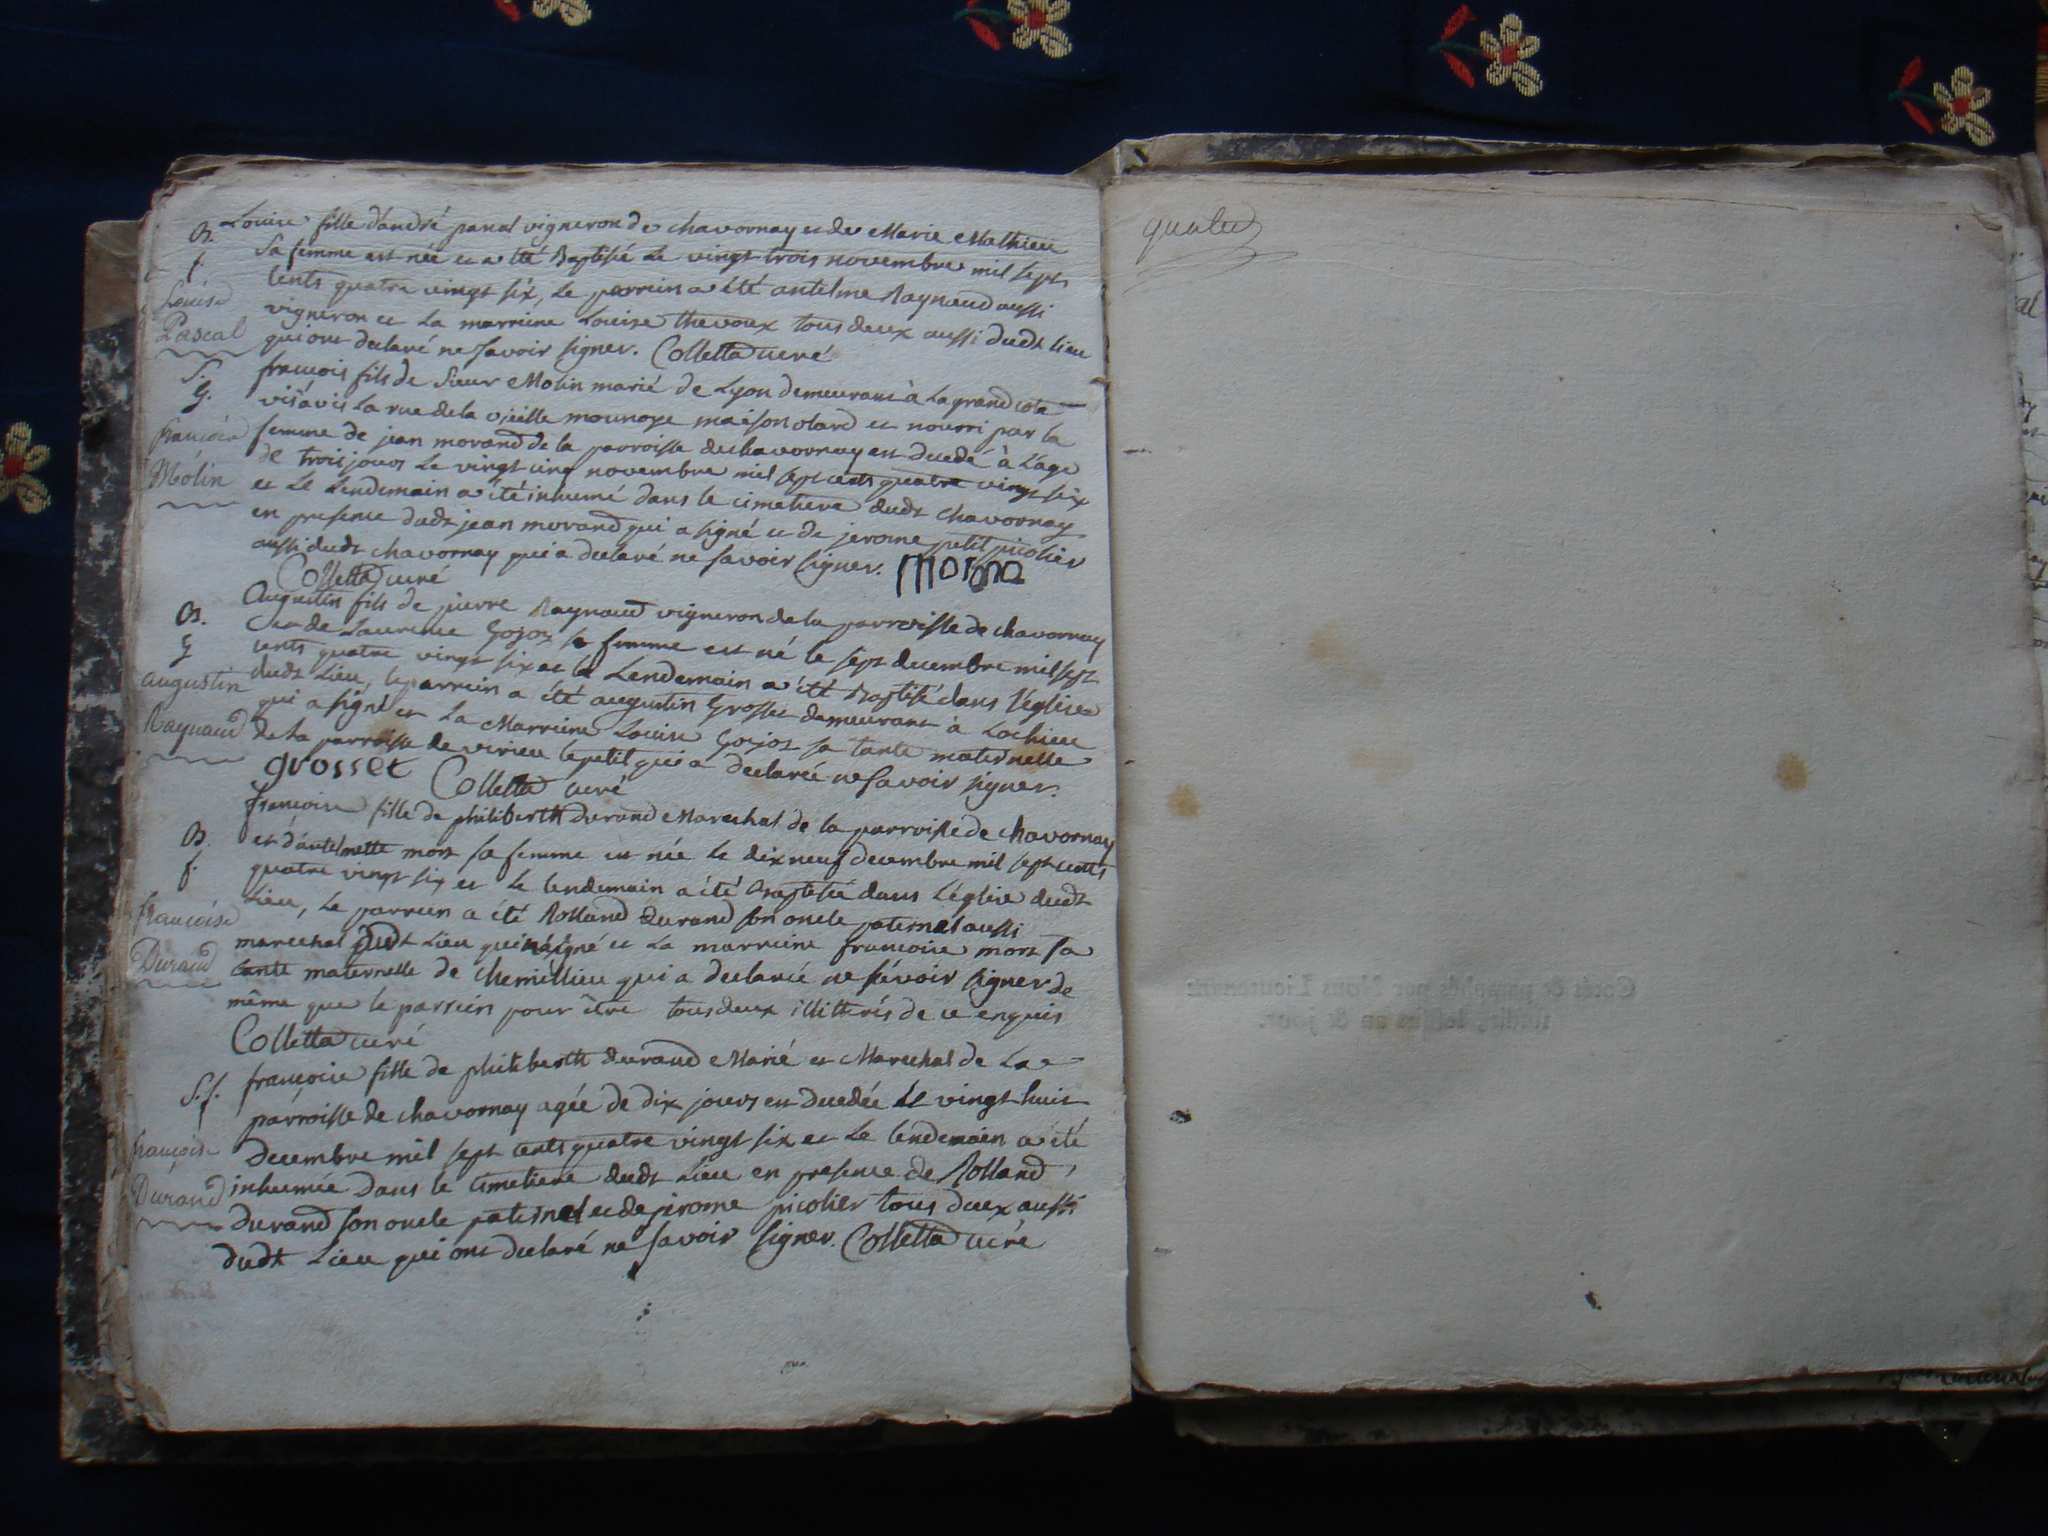 B. Louise fille d'andré pascal vigneron de chavornay et de Marie Mathieu
f. sa femme est née et a été Baptisée Le vingt trois novembre mil sept
Louise cents quatre vingt six, Le parrein a été antelme Raynaud aussi
Pascal vigneron et La marreine Louise thevoux tous deux aussi dudt Lieu
qui ont declaré ne savoir signer. Colletta curé
S. francois fils de sieur Molin marié de Lyon demeurant à La grand cote
g. vis à vis La rue de la vieille monnoye maison olard et nourri par la
françois femme de jean morand de la parroisse de chavornay est decedé à L'age
Molin de trois jours Le vingt cinq novembre mil sept cents quatre vingt six
et Le Lendemain a été inhumé dans le cimetiere dudt chavornay
en presence dudt jean morand qui a signé et de jerome petit picolier
aussi dudt chavornay qui a declaré ne savoir signer. morand
Colletta curé
Augustin fils de pierre Raynaud vigneron de la parroisse de chavornay
B. et de Laurence Gojoz sa femme est né le sept decembre mil sept
g cents quatre vingt six et le Lendemain a été Baptisé dans l'église
augustin dudt Lieu, le parrein a été augustin Grosset demeurant à Lochieu
qui a signé et La Marreine Louise Gojoz sa tante maternelle
Raynaud de la parroisse de virieu le petit qui a declarée ne savoir signer.
grosset Colletta curé
françoise fille de philiberth durand Marechal de la parroisse de chavornay
B. et d'antelmette mort sa femme est née Le dix neuf decembre mil sept cents
f. quatre vingt six et Le lendemain a été Baptisée dans L'église dudt
françoise Lieu, Le parrein a été Rolland durand son oncle paternel aussi
marechal dudt Lieu qui n'a signé et La marreine francoise mort sa
Durand tante maternelle de chemillieu qui a declarée ne sçavoir signer de
même que le parrein pour être tous deux illitterés de ce enquis
Colletta curé
S.f. françoise fille de philiberth durand Marié et Marechal de La
parroisse de chavornay agée de dix jours est decedée Le vingt huit
françoise decembre mil sept cents quatre vingt six et Le lendemain a été
Durand inhumée dans le cimetiere dudt Lieu en presence de Rolland
durand son oncle paternel et de jerome picolier tous deux aussi
dudt Lieu qui ont declaré ne savoir signer. Colletta curé